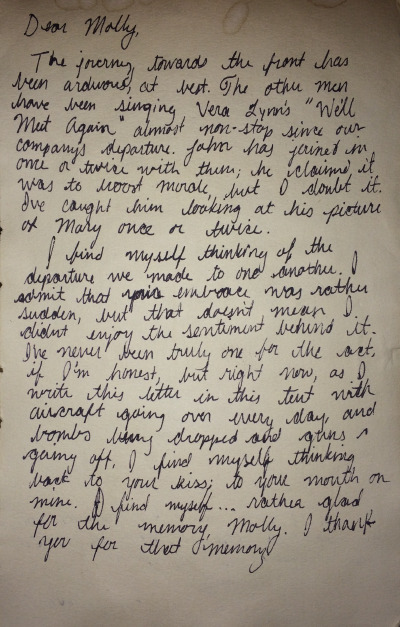 Dear Molly,
The journey towards the front has
been arduous, at best. The other men
have been singing Vera Lynn's "We'll
Meet Again" almost non-stop since our
company's departure. John has joined in
once or twice with them; he claimed it
was to boost morale, but I doubt it.
I've caught him looking at his picture
of Mary once or twice.
I find myself thinking of the
departure we made to one another. I
admit that your embrace was rather
sudden, but that doesn't mean I
didn't enjoy the sentiment behind it.
I've never been truly one for the act,
if I'm honest, but right now, as I
write this letter in this tent with
aircraft going over every day and
bombs being dropped and guns
going off, I find myself thinking
back to your kiss; to your mouth on
mine. I find myself... rather glad
for the memory, Molly. I thank
you for that memory